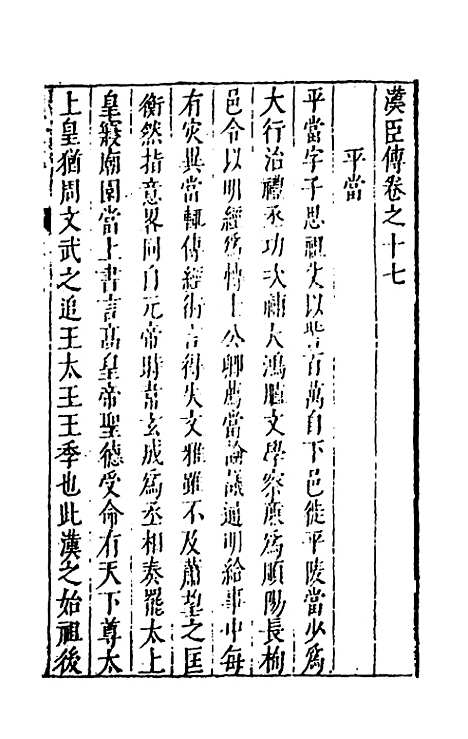 漢臣傳卷之十七
平當
平當字子思祖父以訾百萬自下邑徙平陵當少爲
大行治禮丞功次補大鴻臚文學察廉爲順陽長栒
邑令以明經爲博士公卿薦當論議通明給事中每
有灾異當輒傳經術言得失文雅雖不及蕭望之匡
衡然指意畧同自元帝時韋玄成爲丞相奏罷太上
皇寢廟園當上書言髙皇帝聖德受命有天下尊太
上皇猶周文武之追王太王王季也此漢之始祖後